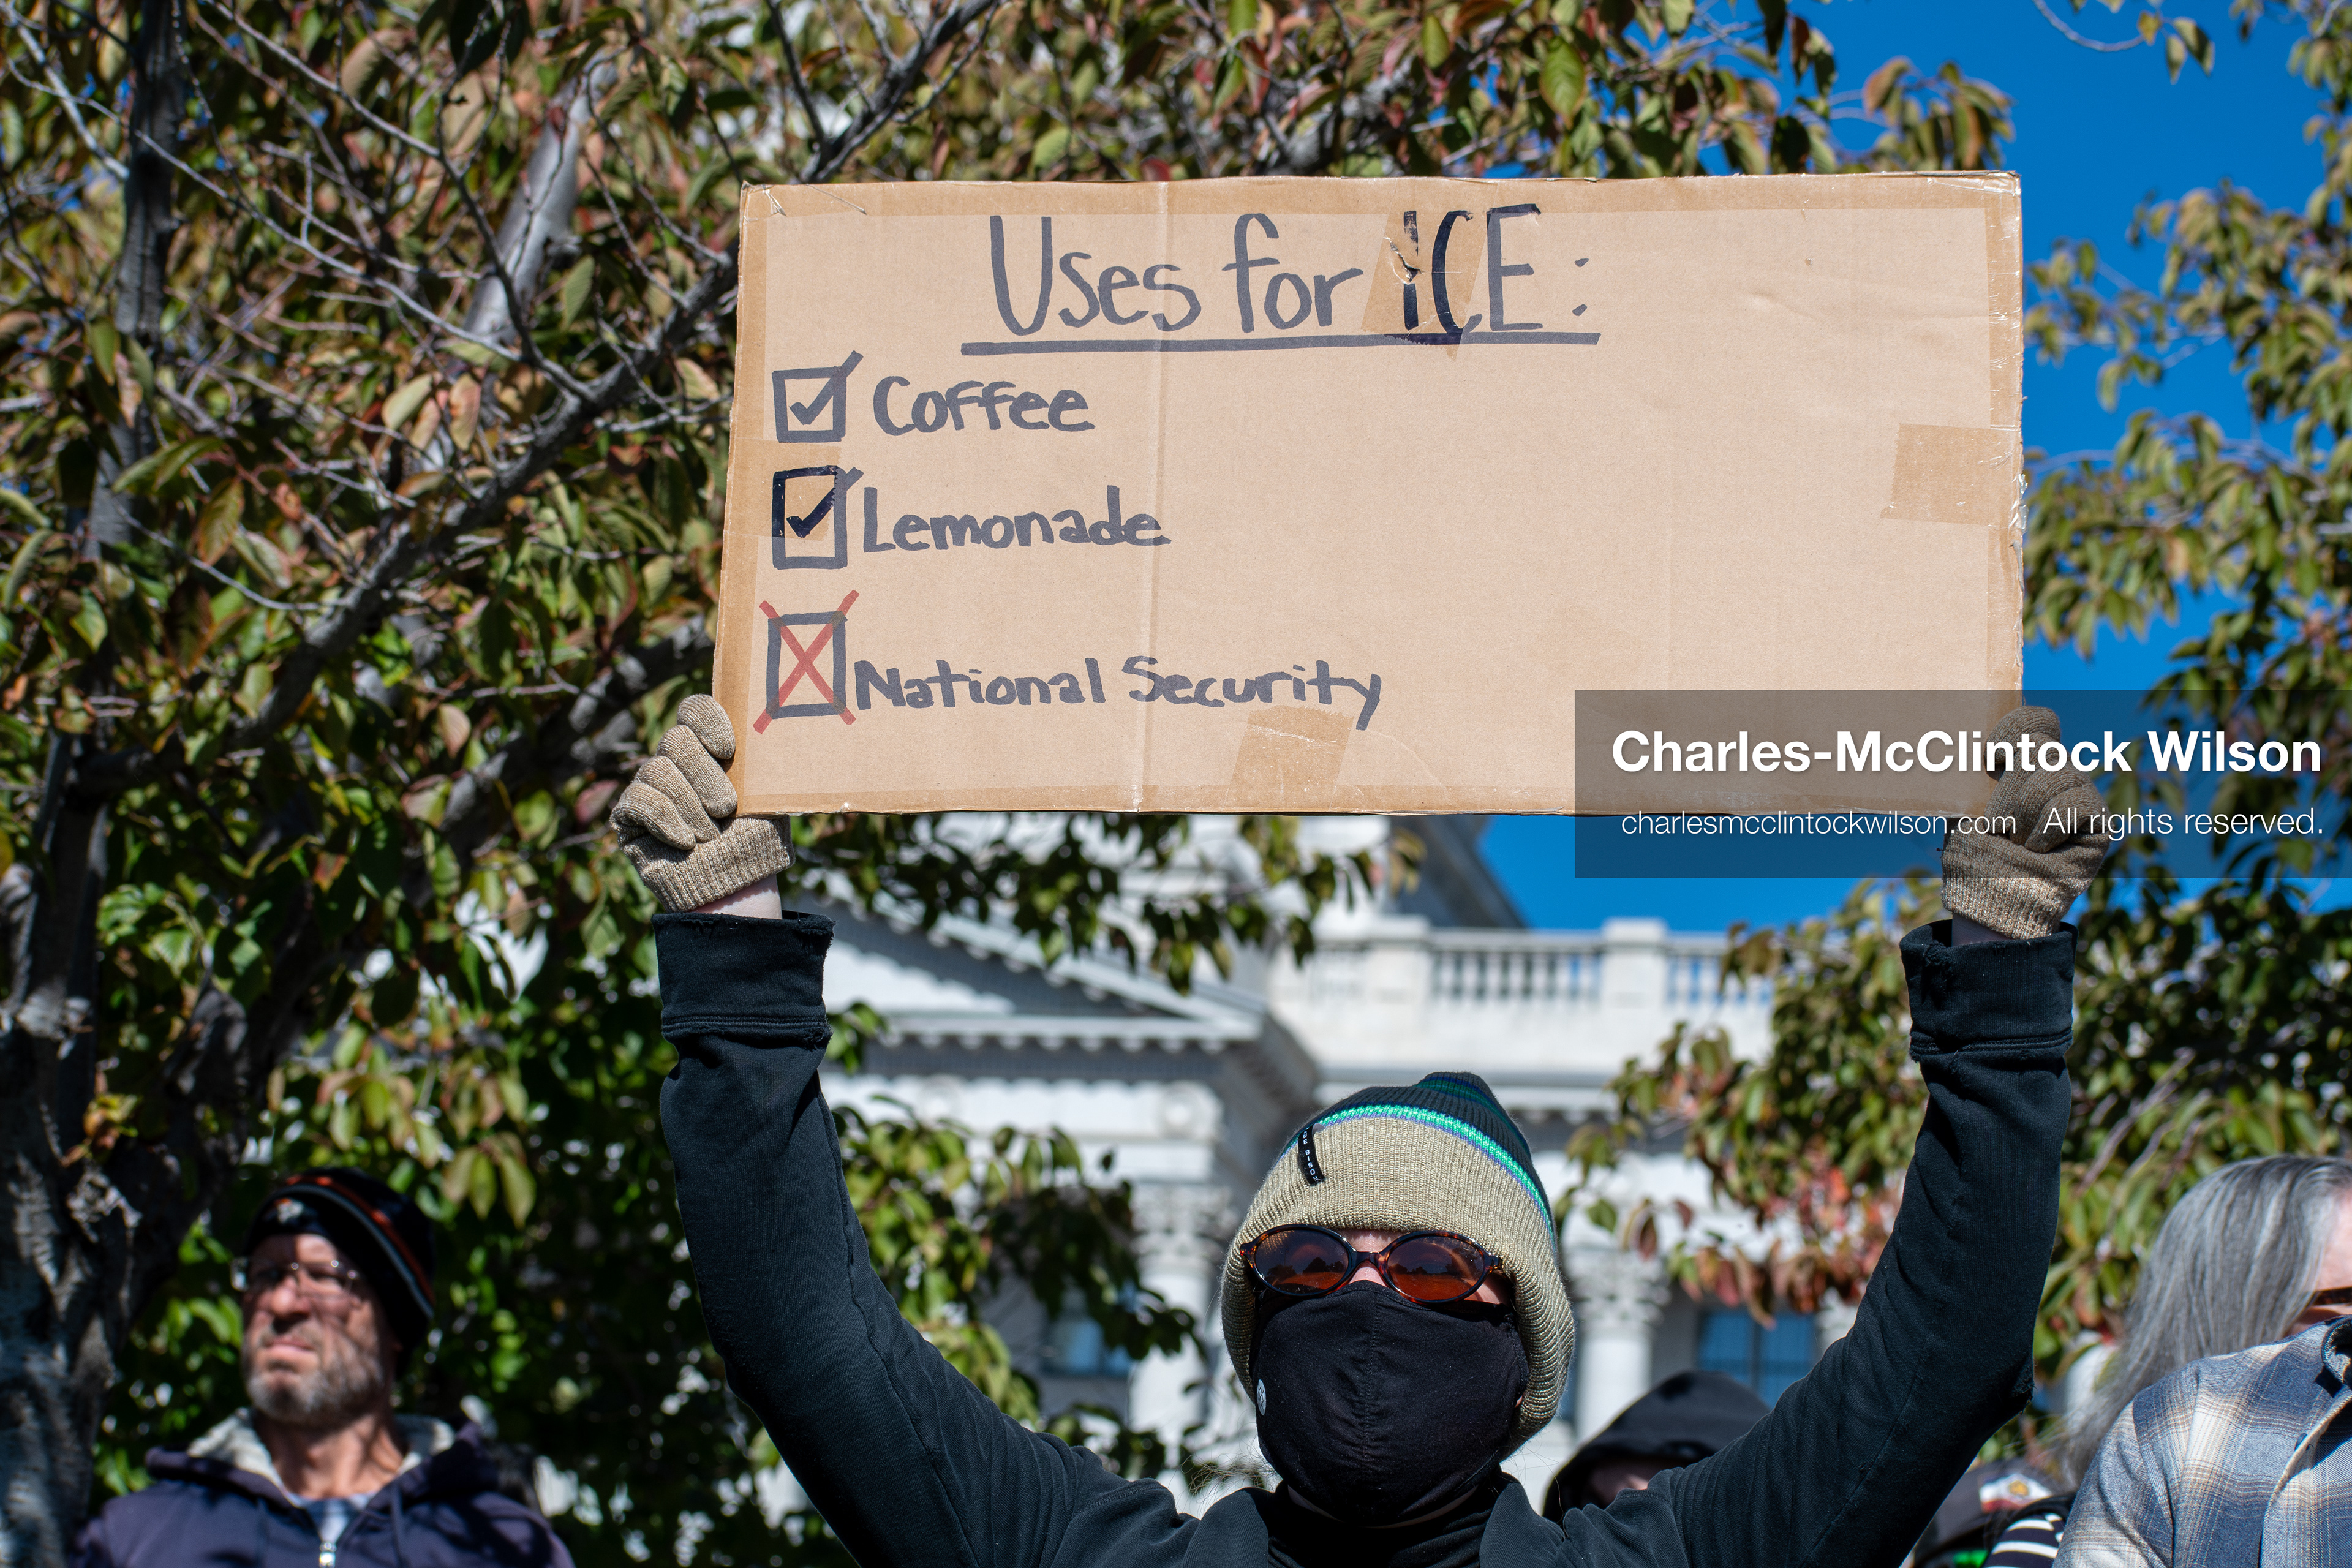 Uses for ICE:
Coffee
Lemonade
National Security
Charles-McClintock Wilson
charlesmcclintockwilson.com All rights reserved.